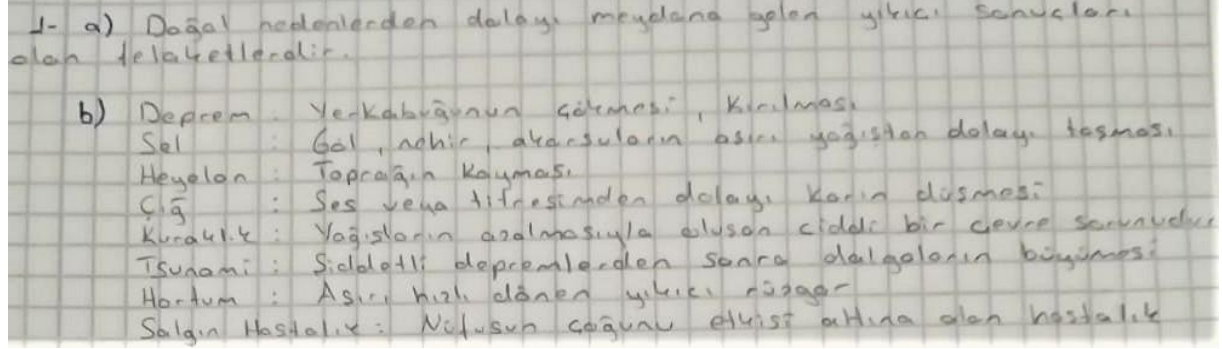 1- a) Doğal nedenlerden dolayı meydana gelen yıkıcı sonuçları
olan felaketlerdir.
b) Deprem : Yerkabuğunun çökmesi, kırılması
Sel : Göl, nehir, akarsuların aşırı yağıştan dolayı taşması
Heyelan : Toprağın kayması
Çığ : Ses veya titreşimden dolayı karın düşmesi
Kuraklık : Yağışların azalmasıyla oluşan ciddi bir çevre sorunudur
Tsunami : Şiddetli depremlerden sonra dalgaların büyümesi
Hortum : Aşırı hızlı dönen yıkıcı rüzgar
Salgın Hastalık : Nüfusun çoğunu etkisi altına alan hastalık